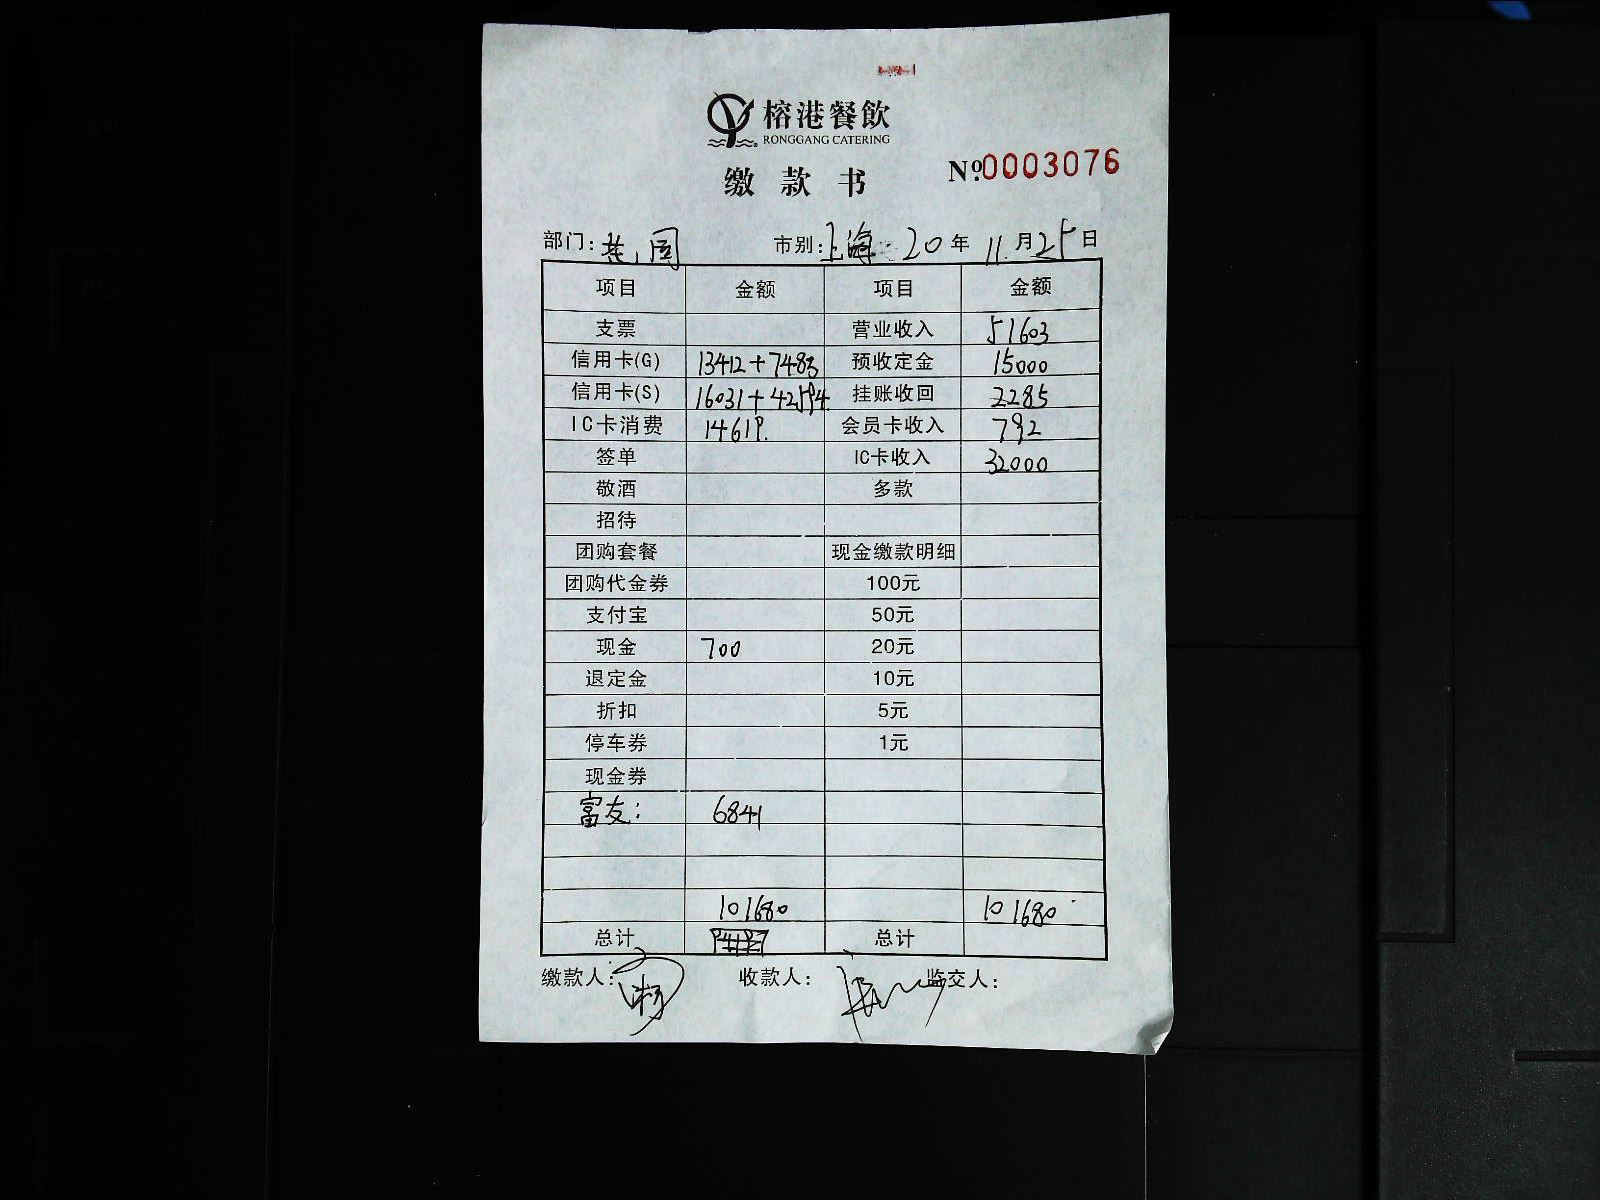 榕港餐飲
RONGGANG CATERING
缴款书
Nº:0003076
部门: 市别:上海 20年11月25日
项目 金额 项目 金额
支票 营业收入 51603
信用卡(G) 13412+7483 预收定金 15000
信用卡(S) 16031+42594 挂账收回 2285
IC卡消费 14619 会员卡收入 792
签单 IC卡收入 32000
敬酒 多款
招待
团购套餐 现金缴款明细
团购代金券 100元
支付宝 50元
现金 700 20元
退定金 10元
折扣 5元
停车券 1元
现金券
富友: 6841
101680 101680
总计 总计
缴款人: 收款人: 监交人: